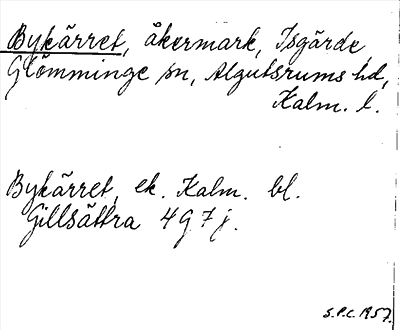 Bykärret, åkermark, Isgärde
Glömminge sn, Algutsrums hd,
Kalm. l.
Bykärret, ek. Kalm. bl.
Gillsättra 4G7j.
S.P.C. 1957.